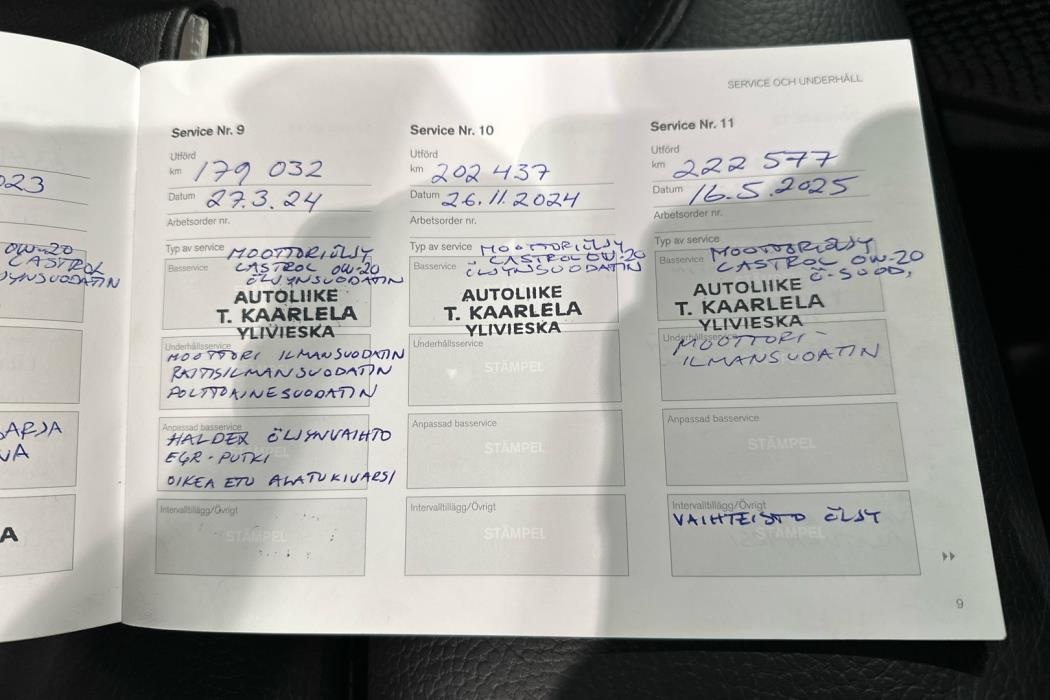 SERVICE OCH UNDERHÅLL
023
OW-20
CASTROL
ARJA
VA
A
Service Nr. 9
Utförd
km 179 032
Datum 27.3.24
Arbetsorder nr.
Typ av service MOOTTORIÖLJY
Basservice CASTROL OW-20
ÖLJYNSUODATIN
AUTOLIIKE
T. KAARLELA
YLIVIESKA
Underhållsservice
MOOTTORI ILMANSUODATIN
RAITISILMANSUODATIN
POLTTOAINESUODATIN
Anpassad basservice
HALDEX ÖLJYNVAIHTO
EGR-PUTKI
OIKEA ETU ALATUKIVARSI
Intervalltillägg/Övrigt
STÄMPEL
Service Nr. 10
Utförd
km 202 437
Datum 26.11.2024
Arbetsorder nr.
Typ av service MOOTTORIÖLJY
CASTROL OW-20
Basservice ÖLJYNSUODATIN
AUTOLIIKE
T. KAARLELA
YLIVIESKA
Underhållsservice
STÄMPEL
Anpassad basservice
STÄMPEL
Intervalltillägg/Övrigt
STÄMPEL
Service Nr. 11
Utförd
km 222 577
Datum 16.5.2025
Arbetsorder nr.
Typ av service MOOTTORIÖLJY
Basservice CASTROL OW-20
Ö-SUOD,
AUTOLIIKE
T. KAARLELA
YLIVIESKA
Underhållsservice
MOOTTORI-
ILMANSUOATIN
Anpassad basservice
STÄMPEL
Intervalltillägg/Övrigt
VAIHTEISTO ÖLJY
STÄMPEL
9